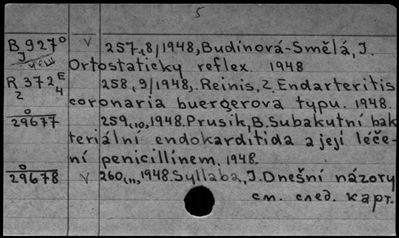 5
B 927° V 257,8/1948, Budínová-Smělá, J.
J Ortostatický reflex. 1948
R 372 E 258,9/1948. Reinis, Z. Endarteritis
2 4 coronaria buergerova typu. 1948.
0 259,10,1948. Prusík, B. Subakutní bak
29677 teriální endokarditida a její léče-
ní penicillínem. 1948.
0 V 260,11,1948. Syllaba, J. Dnešní názory
29678 см. след. карт.